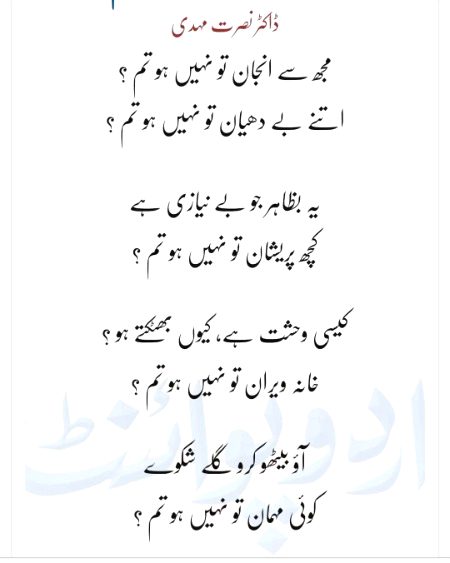 ڈاکٹر نصرت مہدی
مجھ سے انجان تو نہیں ہو تم ؟
اتنے بے دھیان تو نہیں ہو تم ؟
یہ بظاہر جو بے نیازی ہے
کچھ پریشان تو نہیں ہو تم ؟
کیسی وحشت ہے، کیوں بھٹکتے ہو ؟
خانہ ویران تو نہیں ہو تم ؟
آؤ بیٹھو کرو گلے شکوے
کوئی مہمان تو نہیں ہو تم ؟
اردو پوائنٹ